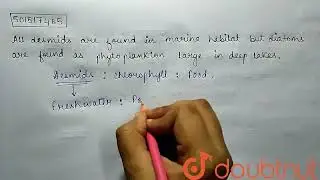 501517485
All desmids are found in marine habitat but diatoms
are found as phytoplankton large in deep lakes.
Desmids : chlorophyll : food.
freshwater : Po
doubtnut